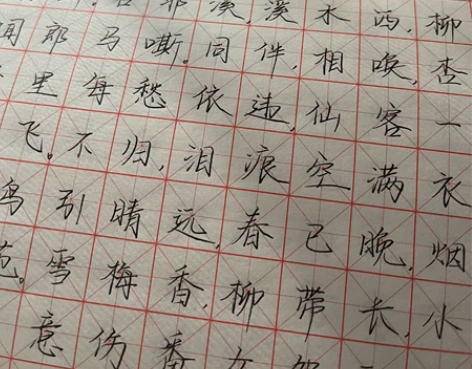 若耶溪,溪水西,柳
闻郎马嘶。同伴,相唤,杏
里每愁依违,仙客一
飞。不归,泪痕空满衣
鸟引晴远,春已晚,烟
苑。雪梅香,柳带长,小
意伤番女怨